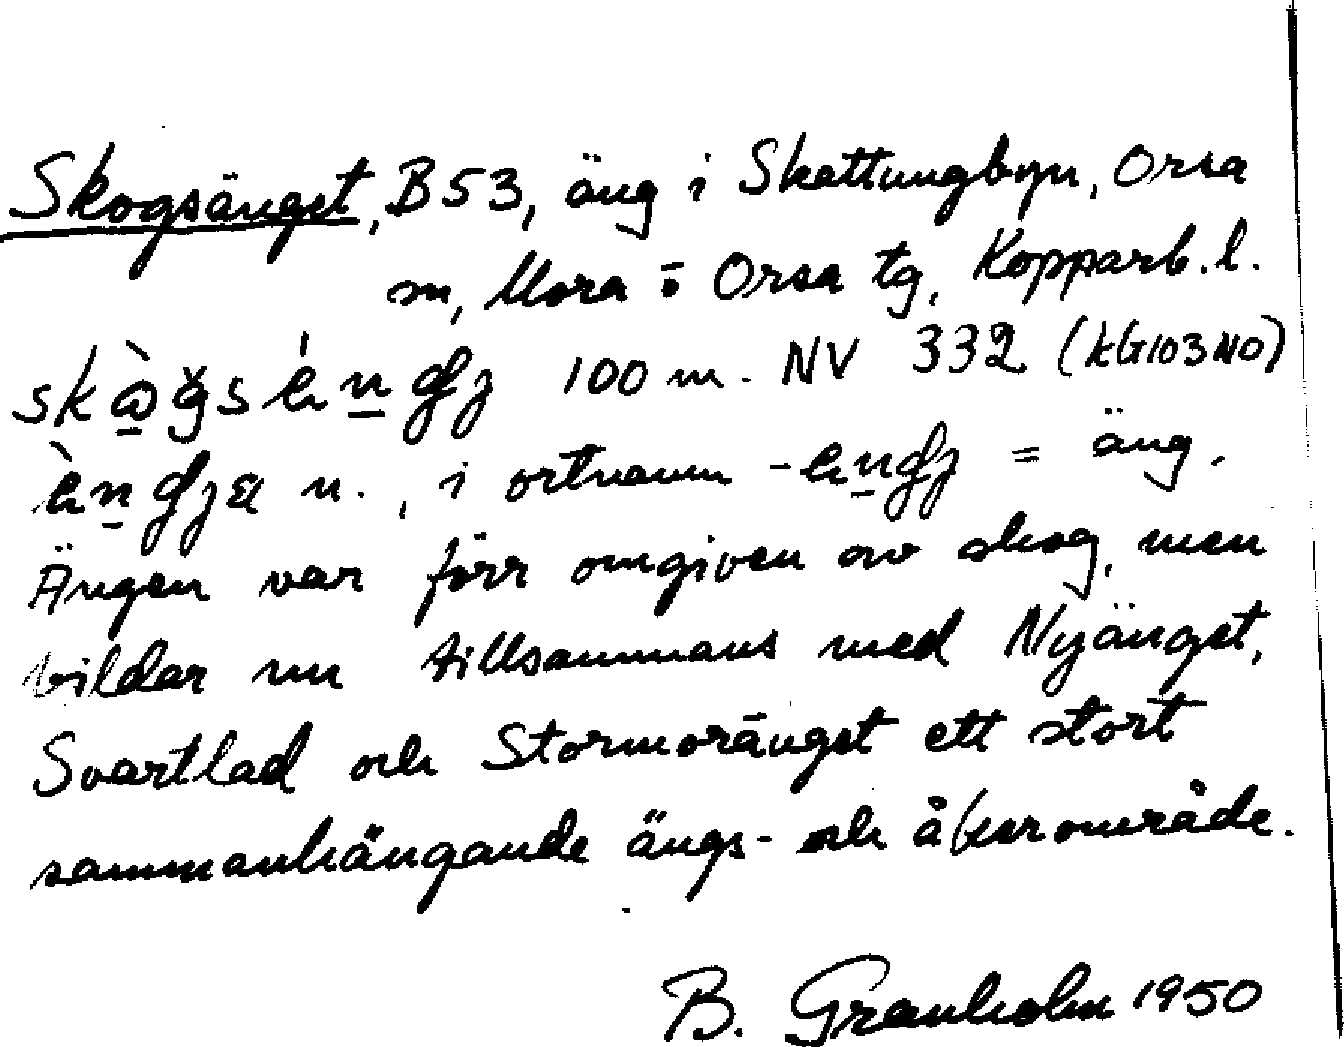 Skogsänget, B53, äng i Skattungbyn, Orsa
m, Mora ö Orsa tg, Kopparb. l.
100 m. NV 332 (kG103NO)
n., i ortnamn = äng.
Ängen var förr omgiven av skog, men
bildar nu tillsammans med Nyänget,
Svartlad och Stormoränget ett stort
sammanhängande ängs- och åkerområde.
B. Granholm 1950